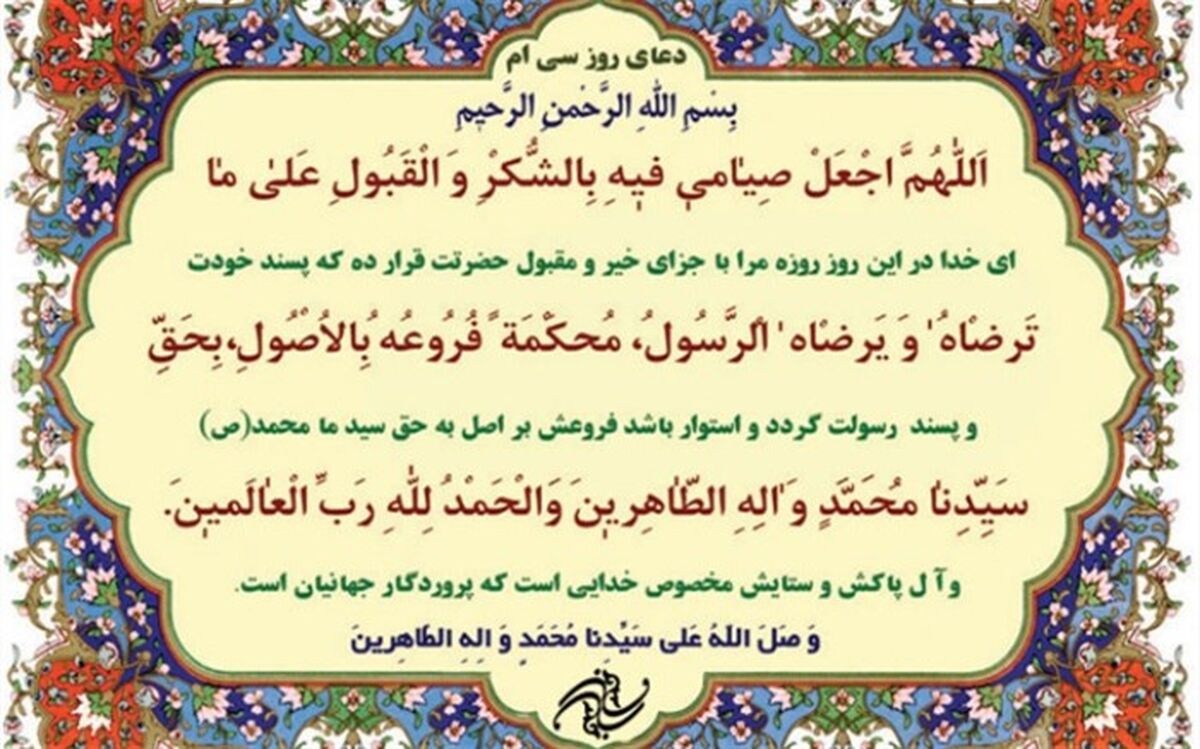 دعای روز سی ام
بِسْمِ اللّٰهِ الرَّحْمٰنِ الرَّحیٖمِ
اَللّٰهُمَّ اجْعَلْ صِیٰامیٖ فیٖهِ بِالشُّکْرِ وَ الْقَبُولِ عَلیٰ مٰا
ای خدا در این روز روزه مرا با جزای خیر و مقبول حضرتت قرار ده که پسند خودت
تَرضٰاهُ وَ یَرضٰاه الرَّسُولُ، مُحکَمَةً فُرُوعُه بِالاُصُولِ،بِحَقِّ
و پسند رسولت گردد و استوار باشد فروعش بر اصل به حق سید ما محمد(ص)
سَیِّدِنٰا مُحَمَّدٍ وَ اٰلِهِ الطّٰاهِریٖنَ وَالْحَمْدُ لِلّٰهِ رَبِّ الْعٰالَمیٖنَ.
و آ ل پاکش و ستایش مخصوص خدایی است که پروردگار جهانیان است.
وَ صَلَ اللّٰهُ عَلی سَیِّدِنا مُحَمَدٍ وَ الِهِ الطّاهِرینَ